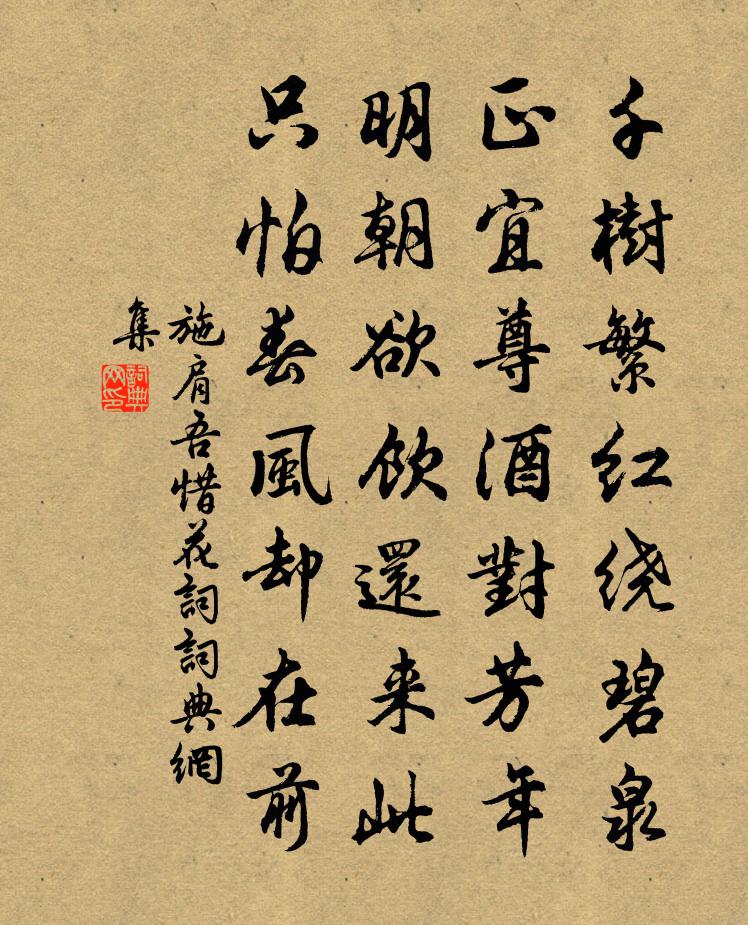 千樹繁红绕碧泉
正宜尊酒對芳年
明朝欲飲還来此
只怕春風却在前
施肩吾惜花詞詞典網
集
詞典
网印